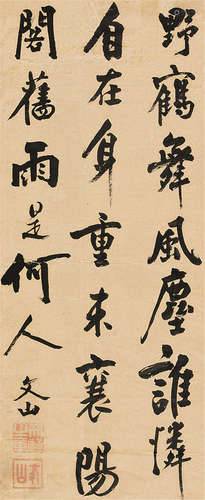 野鶴舞風塵誰憐
自在身重來襄陽
閣舊雨是何人
文山